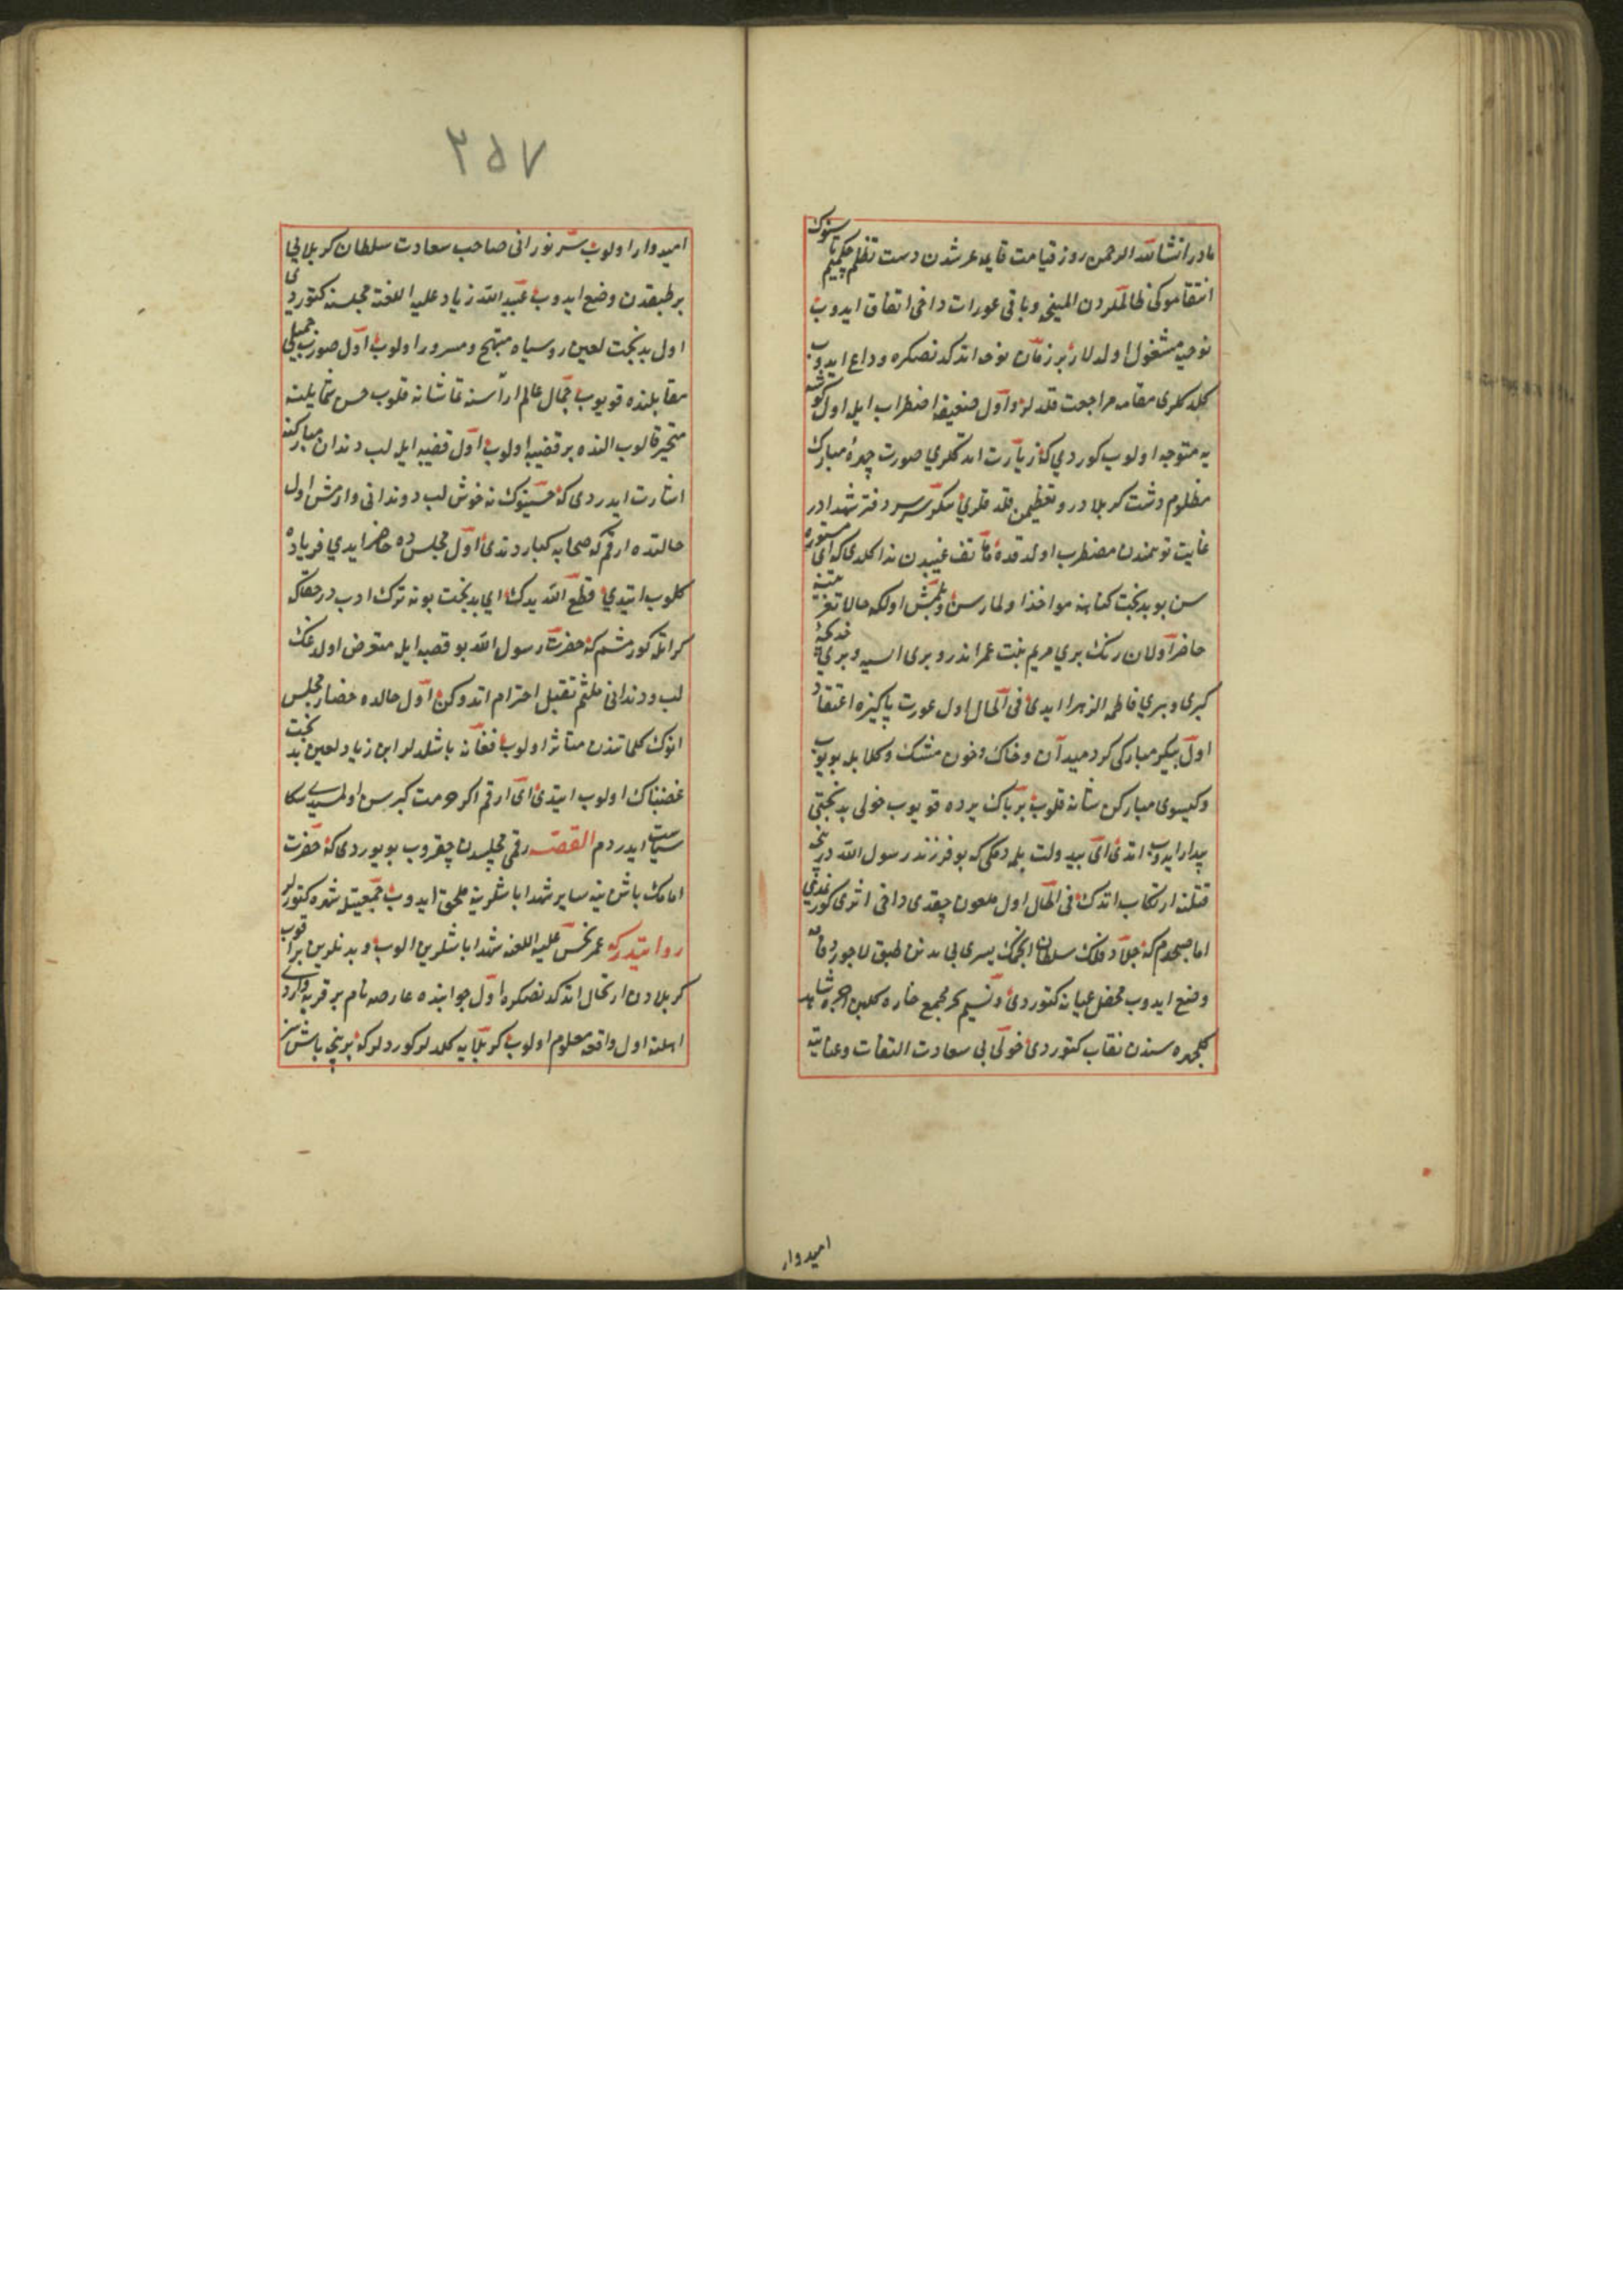 مادر انشاالله الرحمن روز قیامت قایمه عرشدن دست تظلم چکمیم تا سنوك
انتقاموکی ظالملردن المینجه و باقی عورات داخی اتفاق ایدوب
نوحیه مشغول اولدلار بر زمان نوحه اتدکدنصکره وداع ایدوب
کلدکلری مقامه مراجعت قلدلر و اول ضعیفه اضطراب ایله اول کوشه
یه متوجه اولوب کوردی که زیارت اتدکلری صورت چهرهٔ مبارك
مظلوم دشت کربلا در و تعظیمن قلدقلری سر دفتر شهدادر
غایت توهمندن مضطرب اولدقده هاتف غیبدن ندا کلدی که ای مستوره
سن بو بدبخت کناهنه مواخذ اولمازسن و بلمش اولکه حالا تعزیتنه
حاضر اولان رنك بری مریم بنت عمراندر و بری اسیه و بری خدیجهٔ
کبری و بری فاطمه الزهرا ایدی فی الحال اول عورت پاکیزه اعتقاد
اول پیکر مبارکی کرد میدان و خاك و خون مشك و کلابله یویوب
و کیسوی مبارکن شانه قلوب بر پاك یرده قویوب خولی بدبختی
بیدار ایدوب اتدی ای بیدولت بلمدکمی که بو فرزند رسول الله در نیجه
قتلنه ارتکاب اتدك فی الحال اول ملعون چقدی داخی اثری کورنمدی
اما صبحدم که جلاد فلك سلطان انجمك سری بی بدنن طبق لاجوردفامه
وضع ایدوب محفل عیانه کتوردی و نسیم سحر مجمع خاره کلبن
کلچهره سندن نقاب کتوردی خولی بی سعادت التفات و عنایته
امیدوار
٢٥٧
امیدوار اولوب سر نورانی صاحب سعادت سلطان کربلایی
بر طبقدن وضع ایدوب عبید الله زیاد علیه اللعنة مجلسنه کتوردی
اول بدبخت لعین روسیاه مبتهج و مسرور اولوب اول صورت جمیلی
مقابلنده قویوب جمال عالم اراسنه تماشانه قلوب حسن شمایلنه
متحیر قالوب النده بر قضیبه اولوب اول قضیبه ایله لب دندان مبارکنه
اشارت ایدردی که حسینوك نه خوش لب و دندانی وارمش اول
حالتده ارقم که صحابه کباردندی اول مجلسده حاضر ایدی فریاده
کلوب ایتدی قطع الله یدك ای بدبخت بو نه ترك ادب در حقاکه
کراتله کورمشم که حضرت رسول الله بو قضیبه ایله متعرض اولدغك
لب و دندانی ملثم تقبیل احترام اتدوکن اول حالده حضار مجلس
انوك کلماتندن متاثر اولوب فغانه باشلدلر ابن زیاد لعین بدبخت
غضبناك اولوب ایتدی ای ارقم اکر حرمت کبر سن اولمسیدی سکا
سیاست ایدردم القصه رقمی مجلسدن چقروب بویوردی که حضرت
امامك باشینه سایر شهدا باشلرینه ملحق ایدوب جمعیتله شهره کتوردیلر
روایتدر که عمر نحس علیه اللعنه شهدا باشلرین الوب و بدنلرین براقوب
کربلادن ارتحال اتدکدنصکره اول جوانبده عارضه نام بر قریه واردی
اهلنه اول واقعه معلوم اولوب کربلایه کلدلر کوردلر که بر نیجه باشسز